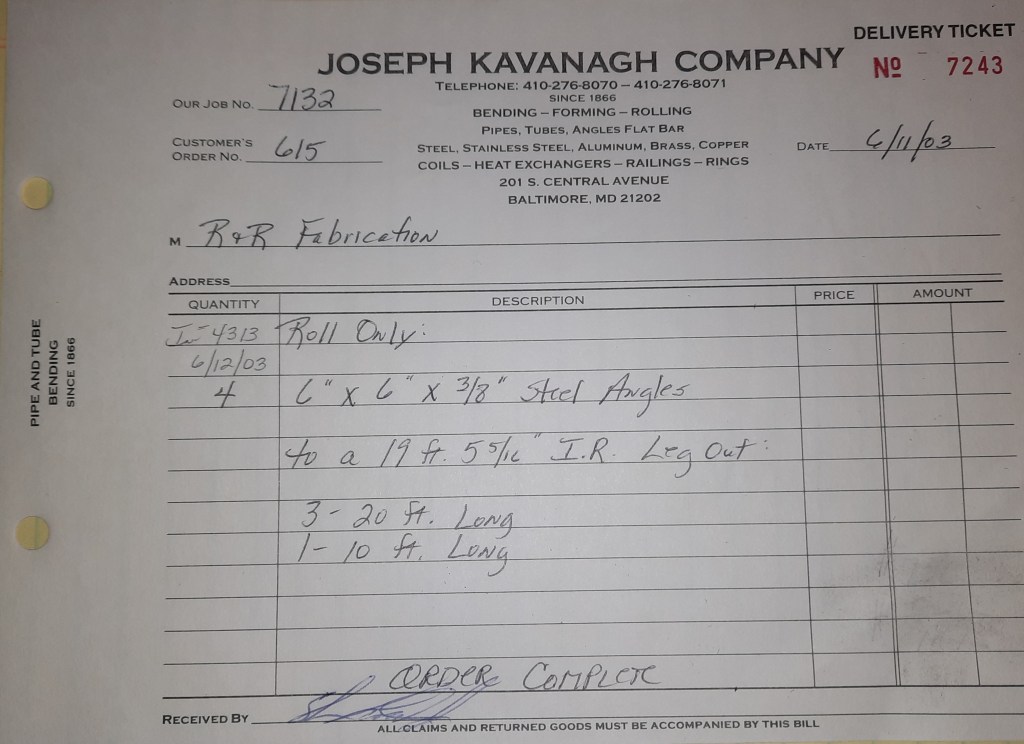 DELIVERY TICKET
JOSEPH KAVANAGH COMPANY
Nº 7243
TELEPHONE: 410-276-8070 – 410-276-8071
SINCE 1866
OUR JOB NO. 7132
BENDING – FORMING – ROLLING
PIPES, TUBES, ANGLES FLAT BAR
CUSTOMER'S
ORDER NO. 615
STEEL, STAINLESS STEEL, ALUMINUM, BRASS, COPPER
DATE 6/11/03
COILS – HEAT EXCHANGERS – RAILINGS – RINGS
201 S. CENTRAL AVENUE
BALTIMORE, MD 21202
M R&R Fabrication
ADDRESS
QUANTITY DESCRIPTION PRICE AMOUNT
4313 Roll Only:
6/12/03
4 6" x 6" x 3/8" Steel Angles
to a 19 ft. 5 5/16" I.R. Leg Out:
3 - 20 ft. Long
1 - 10 ft. Long
ORDER COMPLETE
RECEIVED BY
ALL CLAIMS AND RETURNED GOODS MUST BE ACCOMPANIED BY THIS BILL
PIPE AND TUBE
BENDING
SINCE 1866